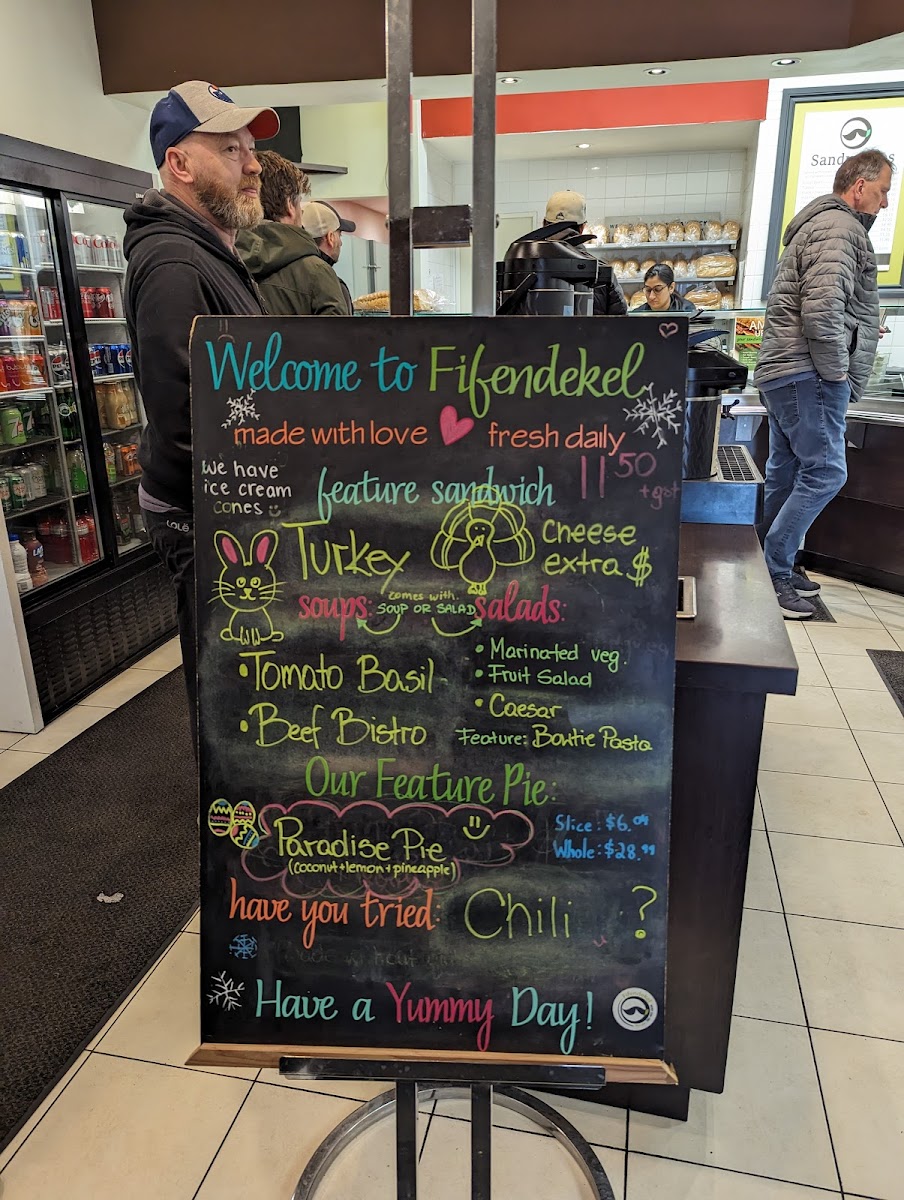 Welcome to Fifendekel
made with love fresh daily
we have
ice cream
cones
feature sandwich
11.50
+gst
Turkey
cheese
extra $
comes with:
soups: SOUP OR SALAD salads:
• Tomato Basil
• Beef Bistro
• Marinated veg.
• Fruit Salad
• Caesar
Feature: Bowtie Pasta
Our Feature Pie:
Paradise Pie
(coconut+lemon+pineapple)
Slice: $6.09
Whole: $28.99
have you tried: Chili ?
Have a Yummy Day!